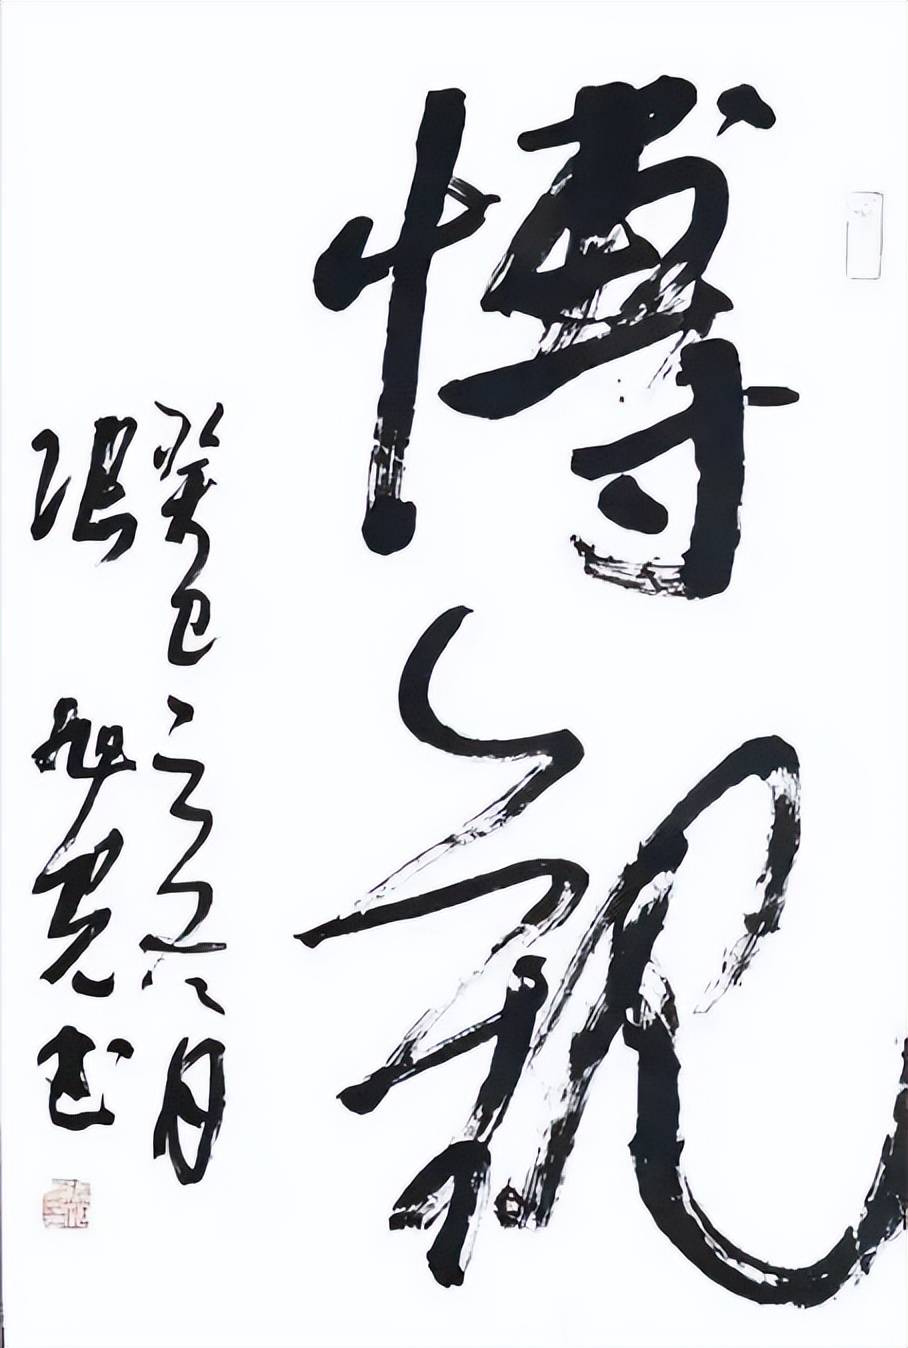 博觀
癸巳之夏六月
張旭光書